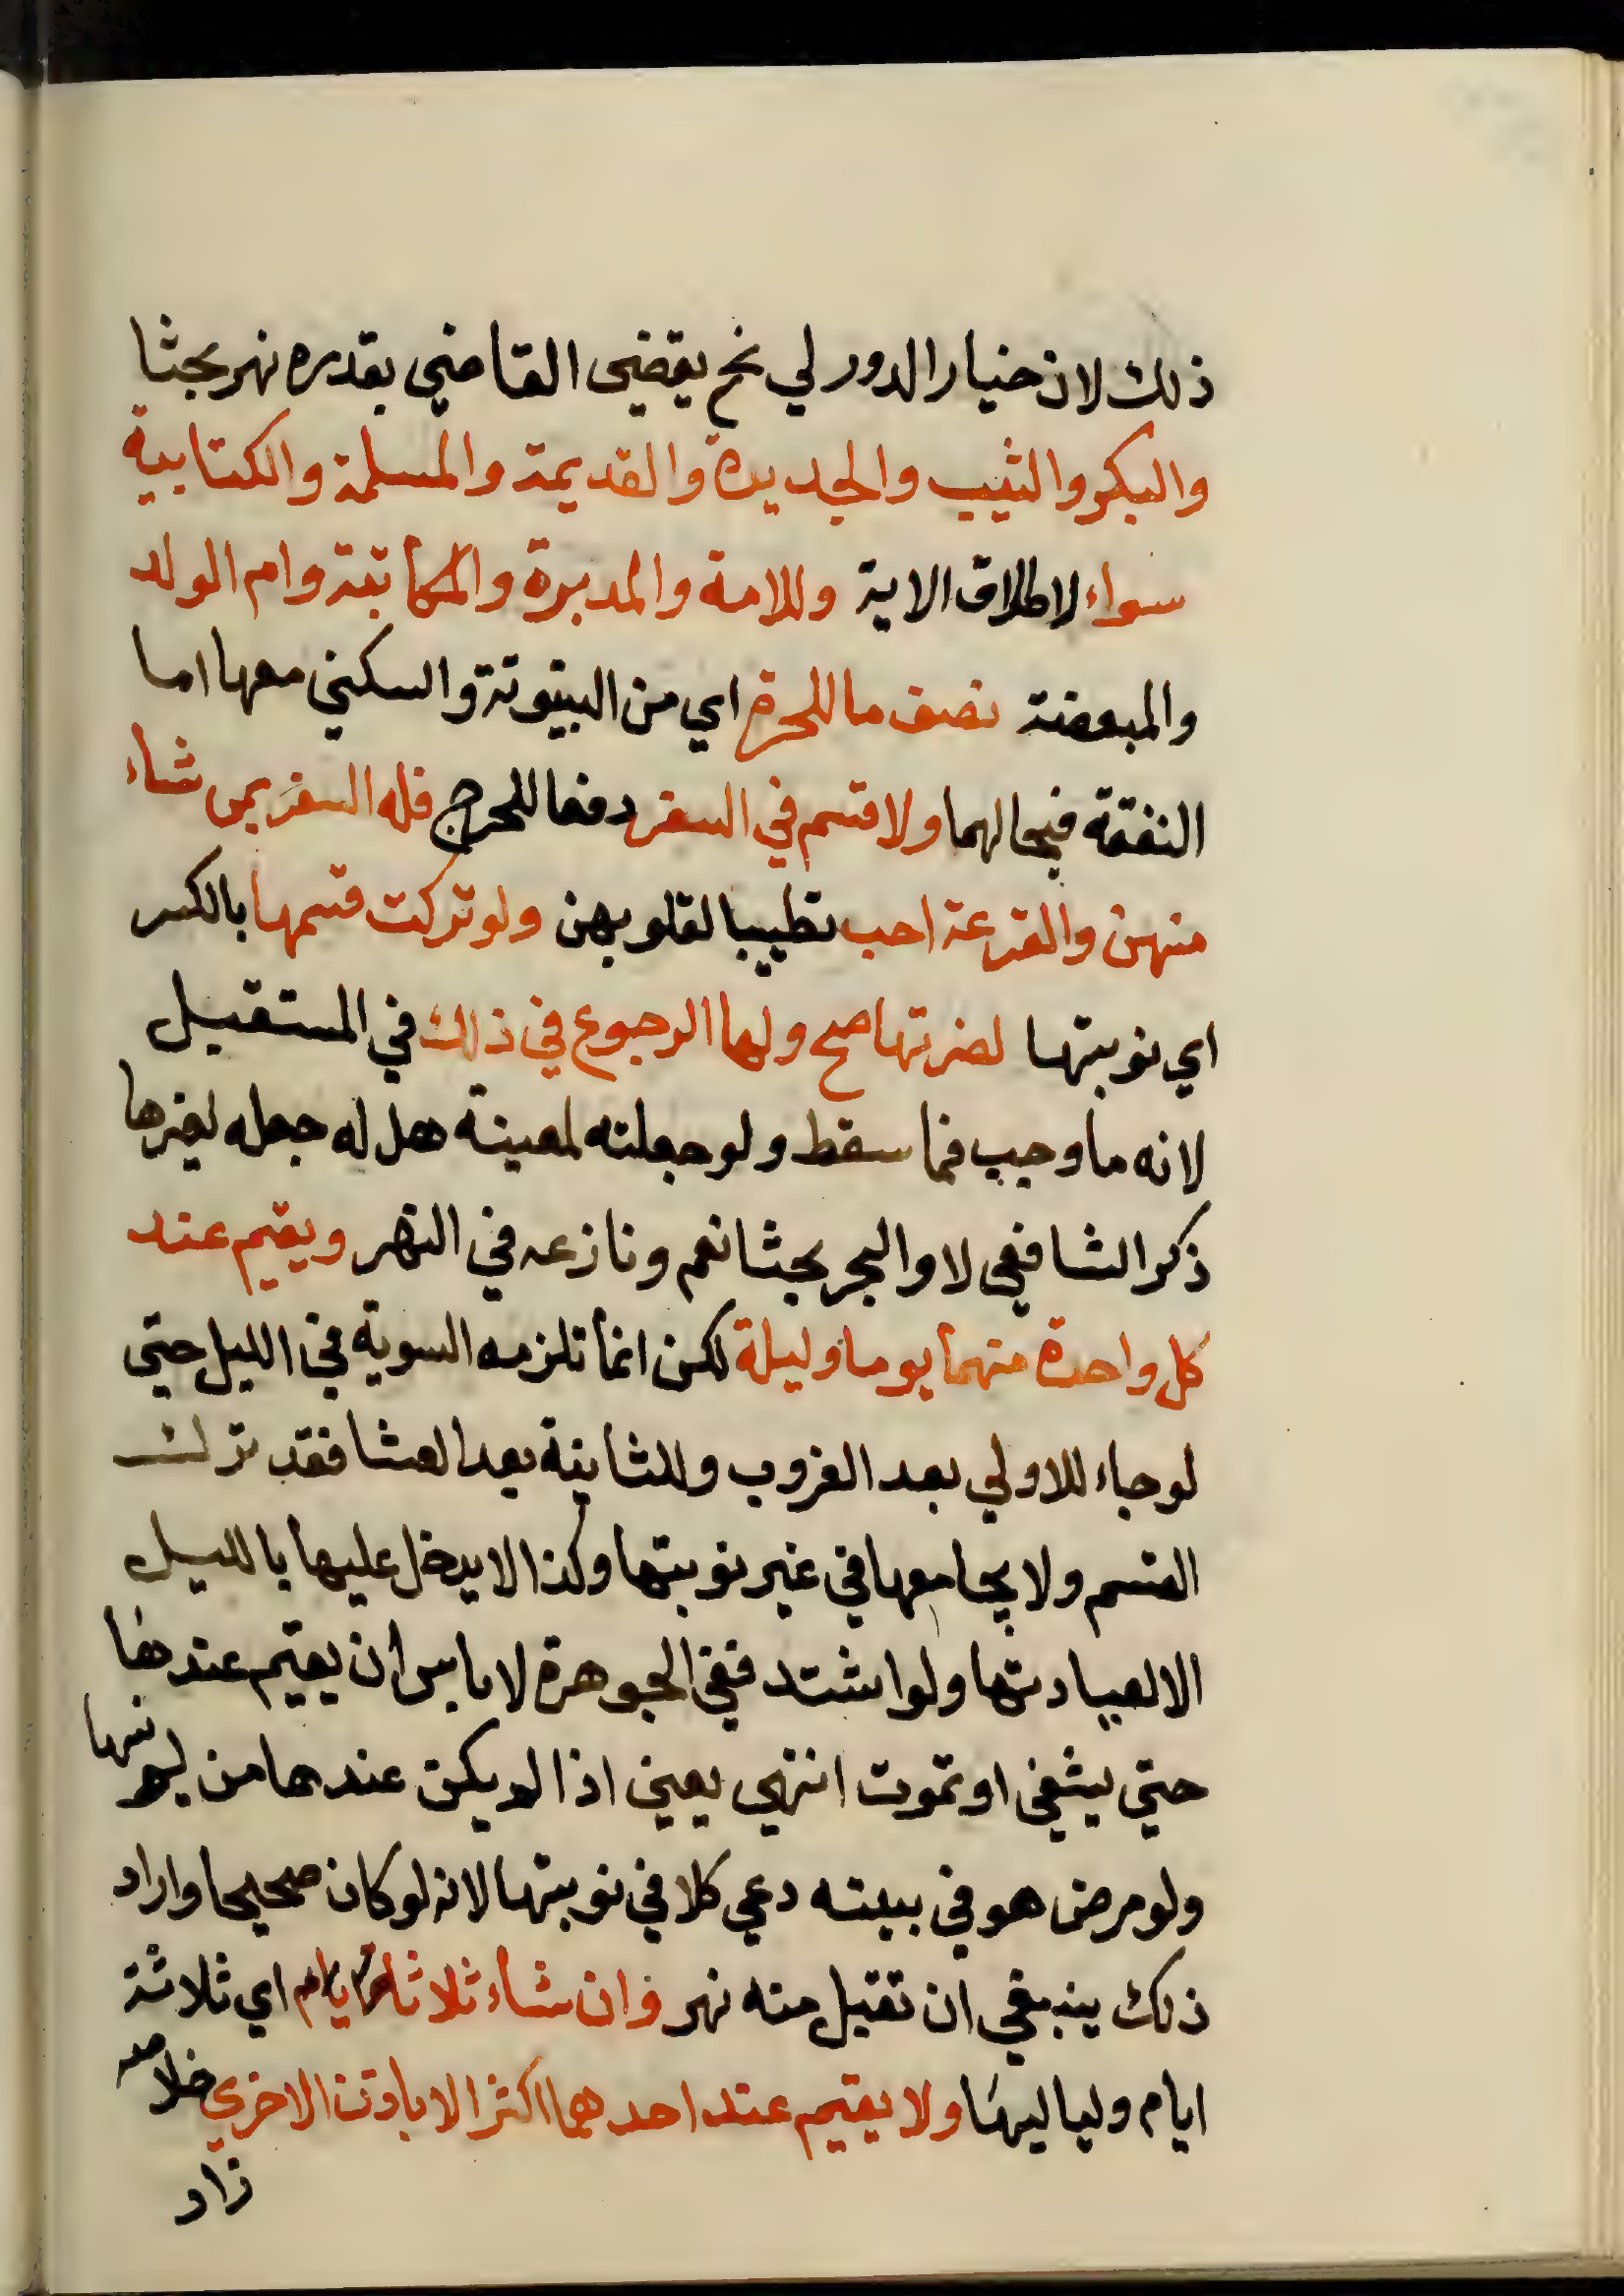 ذلك لان خيار الدور لي نح يقضي القاضي بقدره نهر بحثا
والبكر والثيب والجديدة والقديمة والمسلمة والكتابية
سواء لاطلاق الاية وللامة والمدبرة والمكاتبة وام الولد
والمبعضة نصف ما للحرة اي من البيتوتة والسكني معها اما
النفقة فبحالهما ولا قسم في السفر دفعا للحرج فله السفر بمن شاء
منهن والقرعة احب تطييبا لقلوبهن ولو تركت قسمها بالكسر
اي نوبتها لضرتها صح ولها الرجوع في ذلك في المستقبل
لانه ما وجب فما سقط ولو جعلته لمعينة هل له جعله لغيرها
ذكر الشافعي لا والبحر بحثا نعم ونازعه في النهر ويقيم عند
كل واحدة منهما يوما وليلة لكن انما تلزمه السوية في الليل حتي
لو جاء للاولي بعد الغروب وللثانية بعد العشا فقد ترك
القسم ولا يجامعها في غير نوبتها وكذا لا يدخل عليها بالليل
الا لعيادتها ولو اشتد ففي الجوهرة لا باس ان يقيم عندها
حتي يشفي او تموت انتهي يعني اذا لم يكن عندها من يونسها
ولو مرض هو في بيته دعي كلا في نوبتها لانه لو كان صحيحا واراد
ذلك ينبغي ان تقبل منه نهر وان شاء ثلاثا ايام اي ثلاثة
ايام ولياليها ولا يقيم عند احدهما اكثر الا باذن الاخري خلاصه
زاد